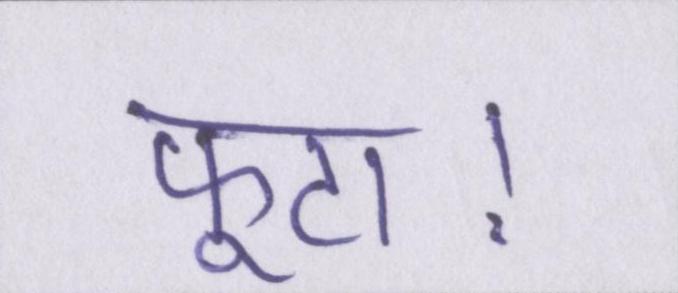 फूटा !